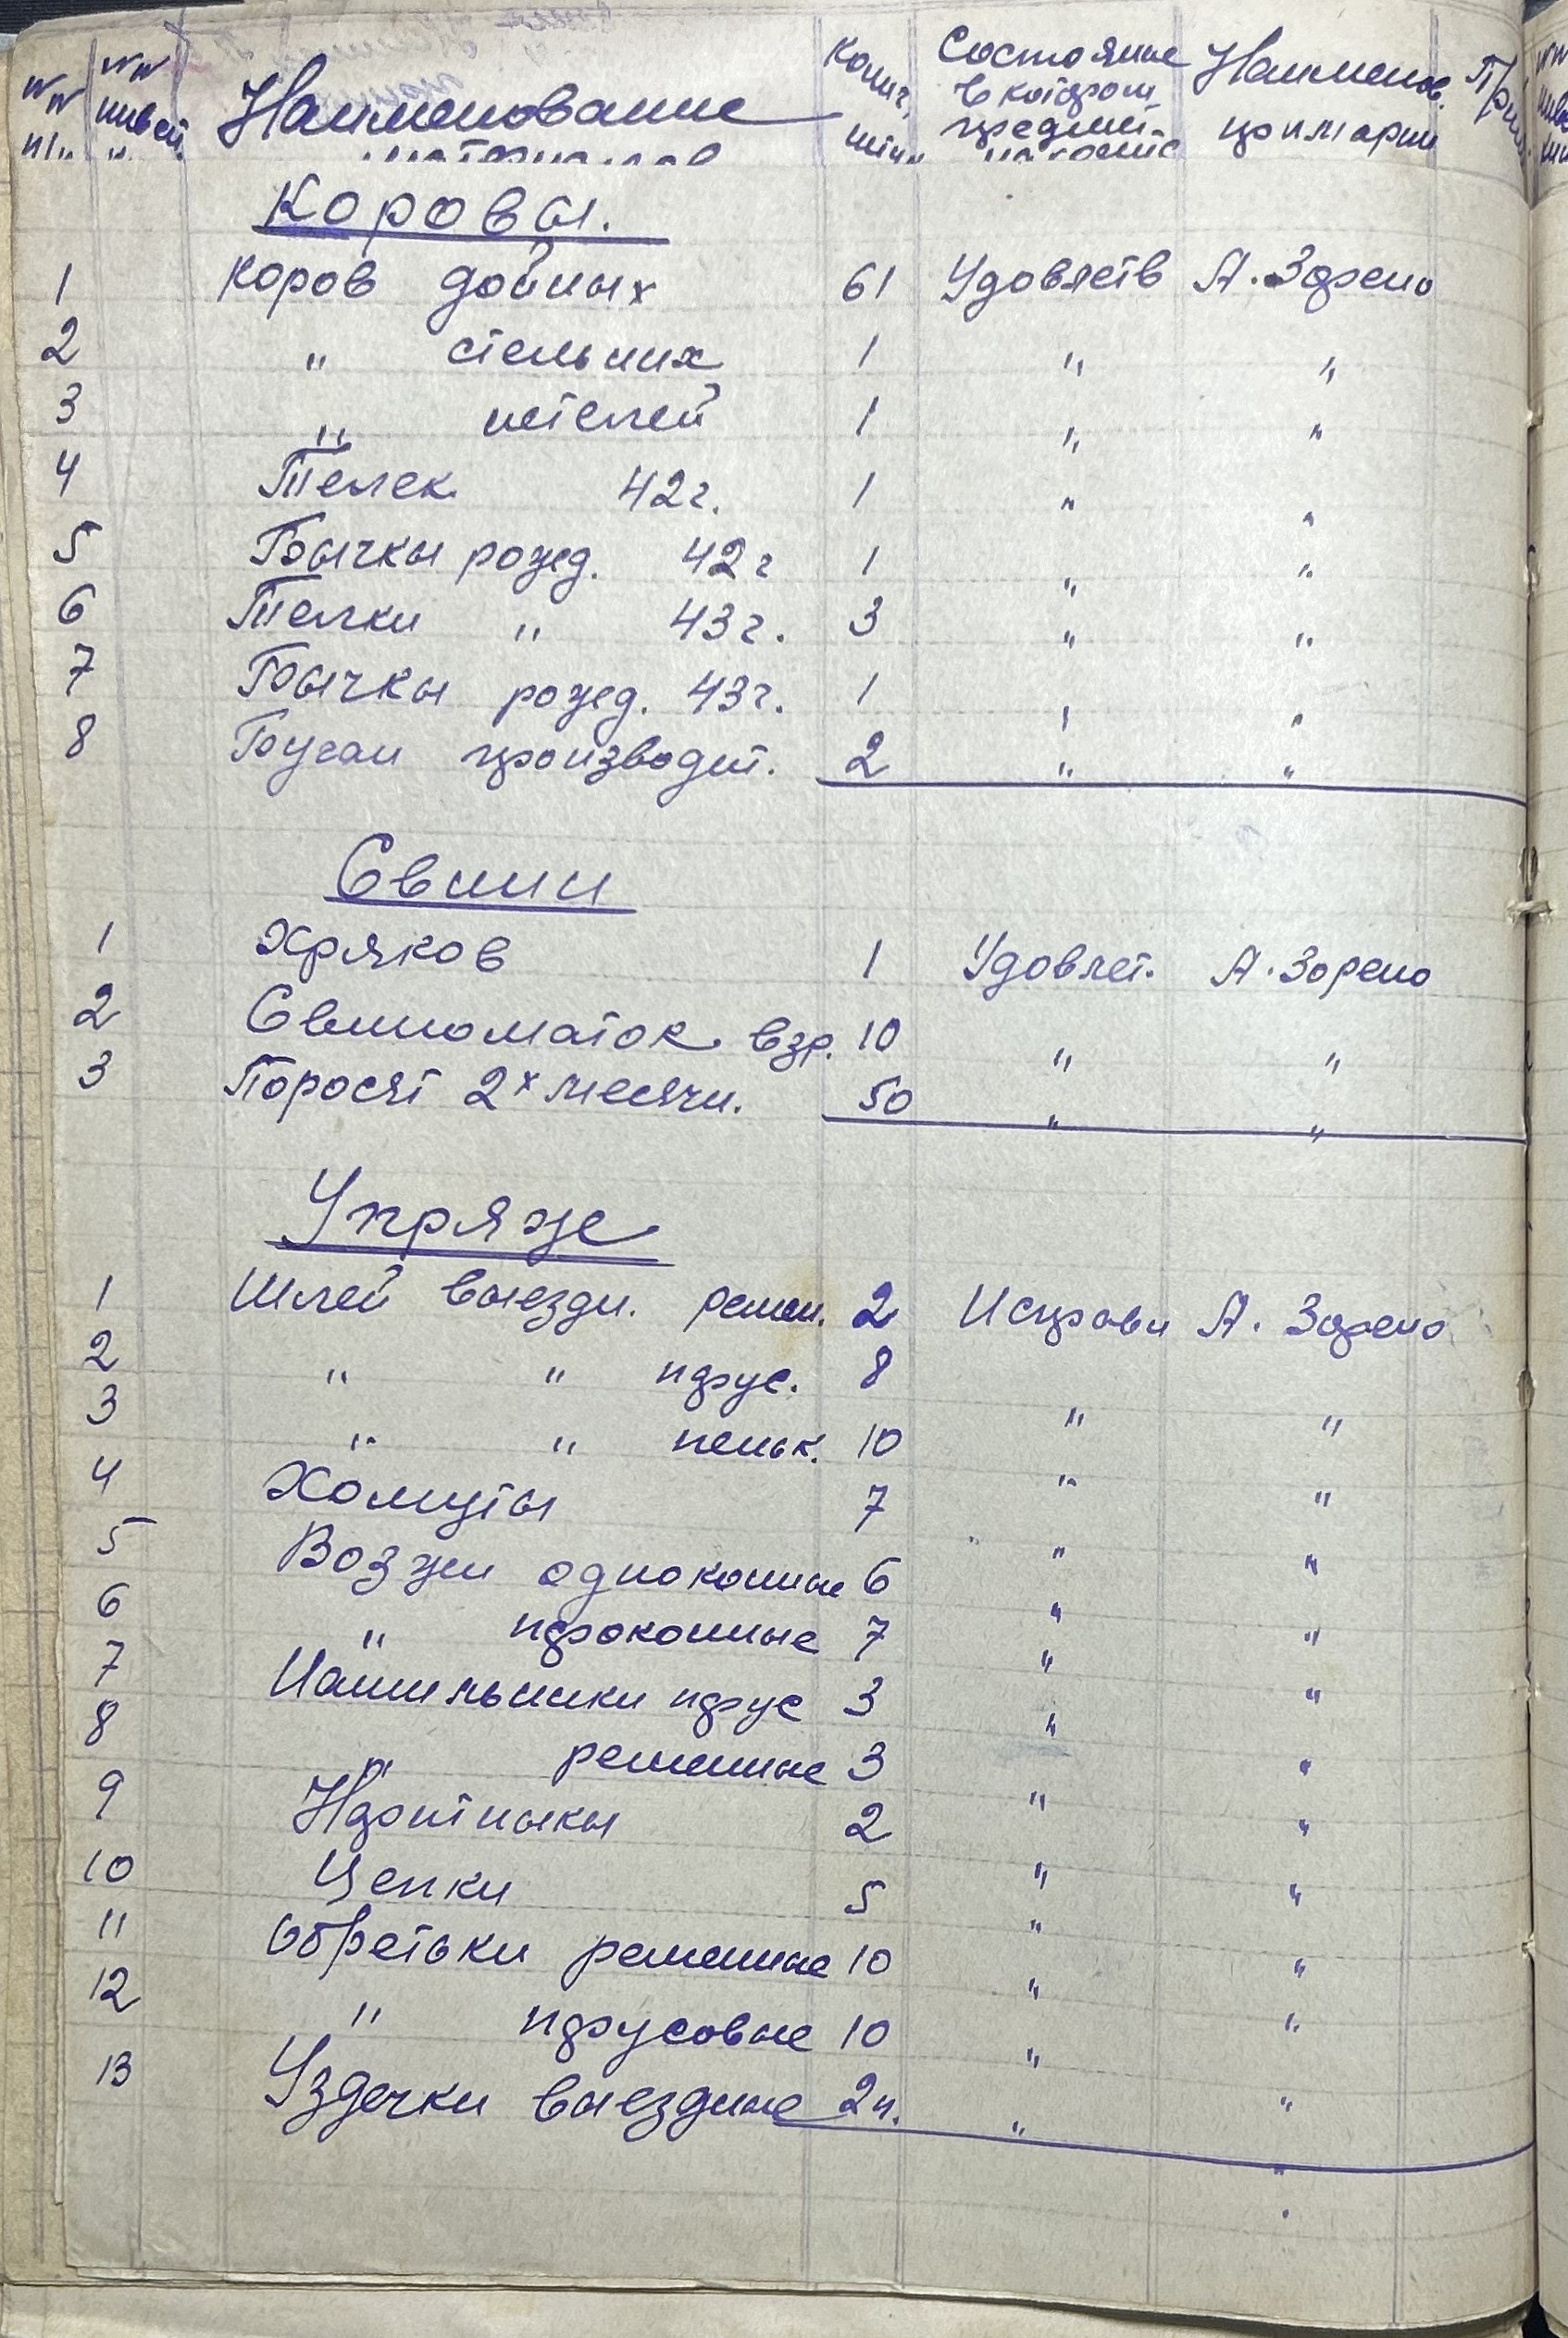 NN п/п NN инвен. Наименование материалов Колич. штук Состояние в котором предмет находит. Наименов. примарии Прим.
Коровы.
1 Коров дойных 61 Удовлетв А. Зорено
2 " стельних 1 " "
3 " нетелей 1 " "
4 Телек 42 г. 1 " "
5 Бычкы рожд. 42 г 1 " "
6 Телки " 43 г. 3 " "
7 Бычкы рожд. 43 г. 1 " "
8 Бугаи производит. 2 " "
Свини
1 Хряков 1 Удовлет. А. Зорено
2 Свиноматок взр. 10 " "
3 Поросят 2х месячн. 50 " "
Упряже
1 Шлей выездн. ремен. 2 Исправн А. Зорено
2 " " парус. 8 " "
3 " " пеньк. 10 " "
4 Хомуты 7 " "
5 Возжи одноконные 6 " "
6 " пароконные 7 " "
7 Нашильники парус 3 " "
8 " ременные 3 " "
9 Наритныкы 2 " "
10 Цепки 5 " "
11 Обретьки ременные 10 " "
12 " парусовые 10 " "
13 Уздечки выездные 2 п. " "